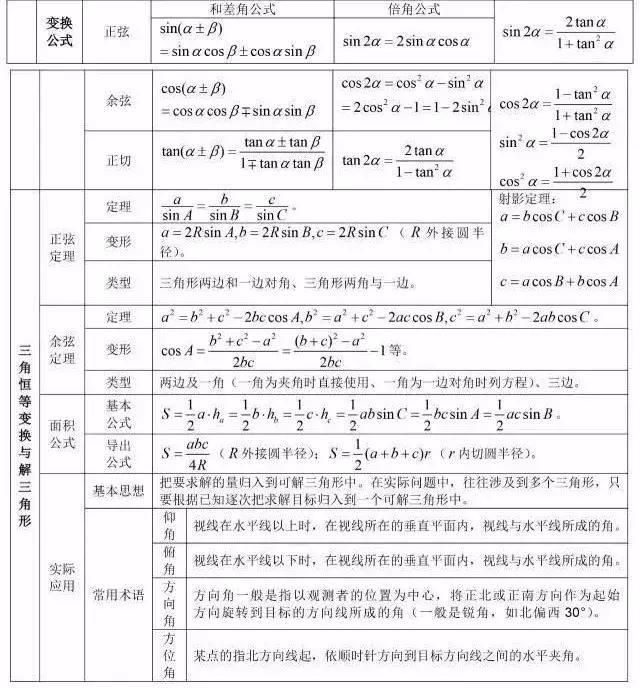 和差角公式 倍角公式
变换公式 正弦 sin(α±β)=sinαcosβ±cosαsinβ sin2α=2sinαcosα sin2α=2tanα/(1+tan²α)
余弦 cos(α±β)=cosαcosβ∓sinαsinβ cos2α=cos²α−sin²α
=2cos²α−1=1−2sin²α
cos2α=(1−tan²α)/(1+tan²α)
sin²α=(1−cos2α)/2
cos²α=(1+cos2α)/2
正切 tan(α±β)=(tanα±tanβ)/(1∓tanαtanβ) tan2α=2tanα/(1−tan²α)
三角恒等变换与解三角形
正弦定理
定理 a/sinA=b/sinB=c/sinC。
变形 a=2RsinA,b=2RsinB,c=2RsinC（R外接圆半
径）。
类型 三角形两边和一边对角、三角形两角与一边。
射影定理：
a=bcosC+ccosB
b=acosC+ccosA
c=acosB+bcosA
余弦定理
定理 a²=b²+c²−2bccosA,b²=a²+c²−2accosB,c²=a²+b²−2abcosC。
变形 cosA=(b²+c²−a²)/2bc=((b+c)²−a²)/2bc−1等。
类型 两边及一角（一角为夹角时直接使用、一角为一边对角时列方程）、三边。
面积公式
基本公式 S=1/2a·hₐ=1/2b·h_b=1/2c·h_c=1/2absinC=1/2bcsinA=1/2acsinB。
导出公式 S=abc/4R（R外接圆半径）；S=1/2(a+b+c)r（r内切圆半径）。
实际应用
基本思想 把要求解的量归入到可解三角形中。在实际问题中，往往涉及到多个三角形，只
要根据已知逐次把求解目标归入到一个可解三角形中。
常用术语
仰角 视线在水平线以上时，在视线所在的垂直平面内，视线与水平线所成的角。
俯角 视线在水平线以下时，在视线所在的垂直平面内，视线与水平线所成的角。
方向角 方向角一般是指以观测者的位置为中心，将正北或正南方向作为起始
方向旋转到目标的方向线所成的角（一般是锐角，如北偏西30°）。
方位角 某点的指北方向线起，依顺时针方向到目标方向线之间的水平夹角。